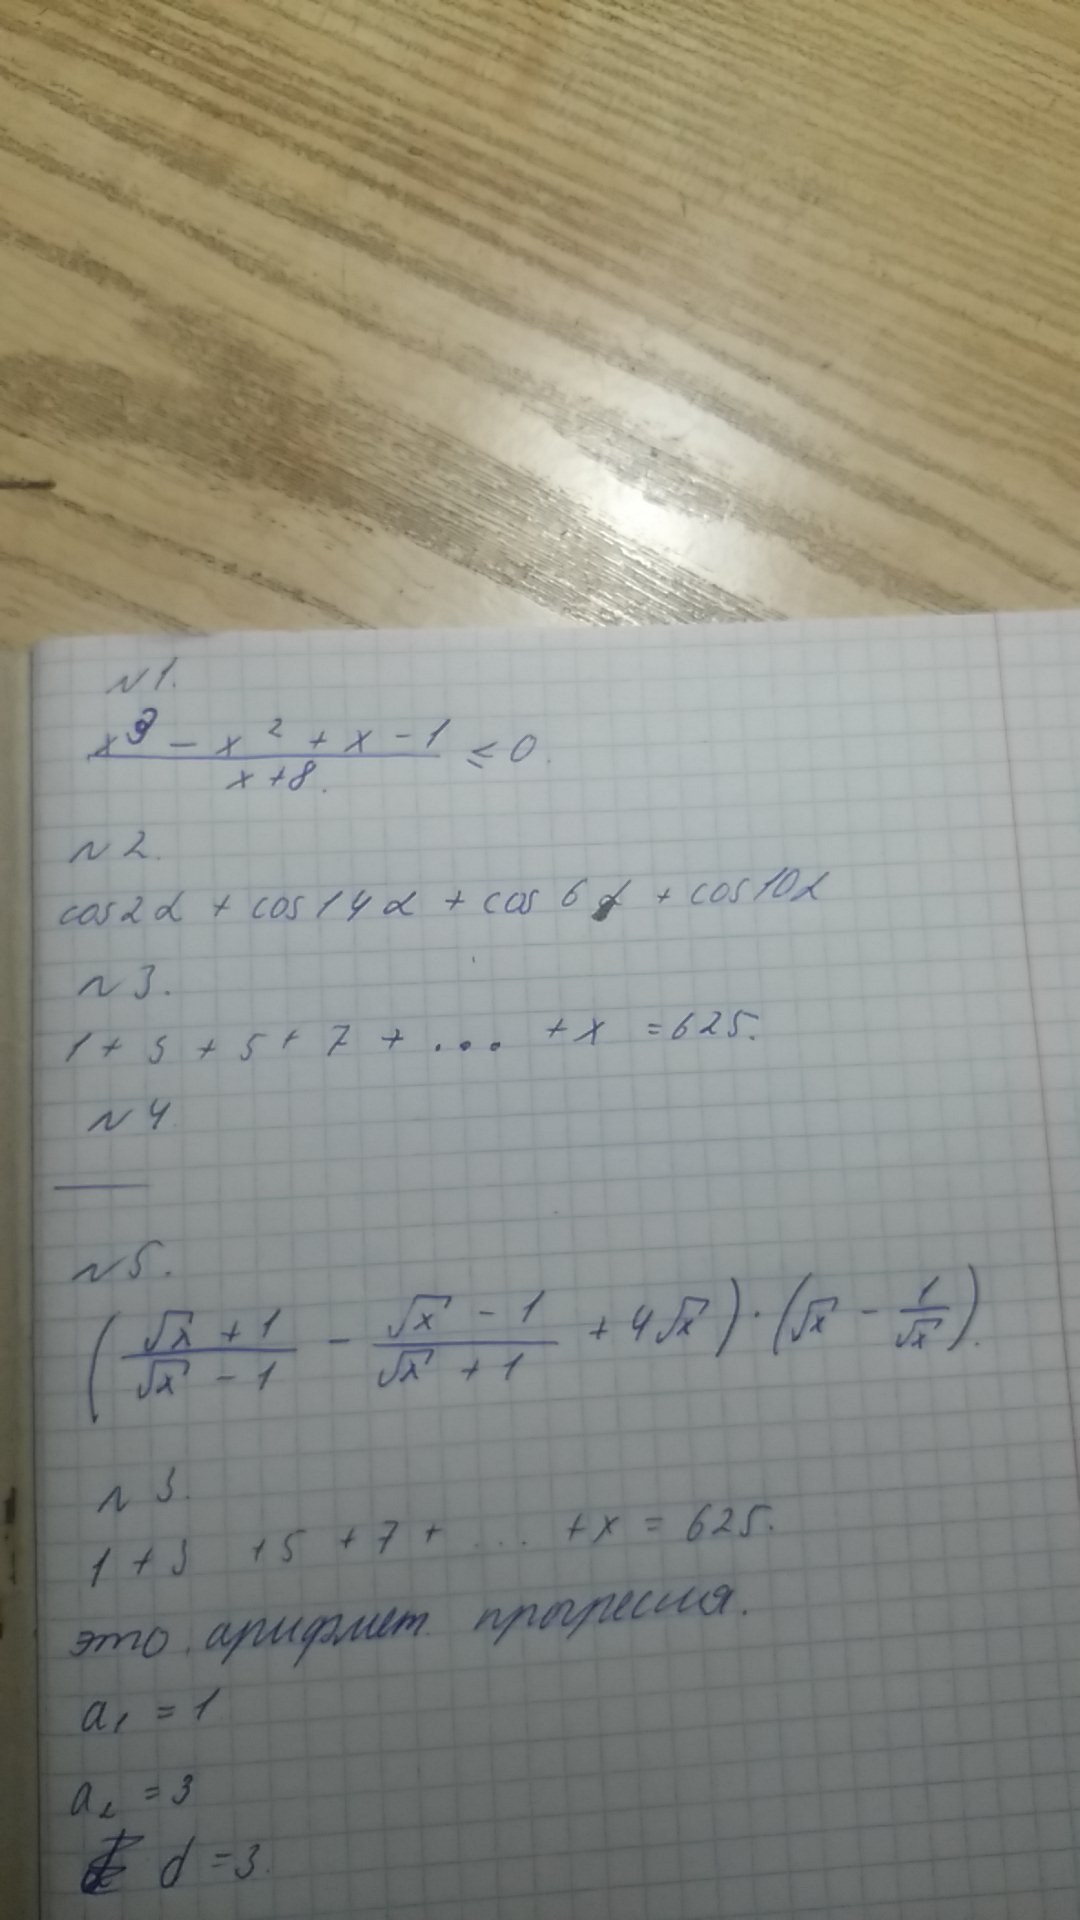 N1.
(x³ - x² + x - 1)/(x + 8) ≤ 0.
N2.
cos2α + cos14α + cos6α + cos10α
N3.
1 + 3 + 5 + 7 + ... + x = 625.
N4
N5.
((√x + 1)/(√x - 1) - (√x - 1)/(√x + 1) + 4√x) · (√x - 1/√x).
N3.
1 + 3 + 5 + 7 + ... + x = 625.
это арифмет. прогрессия.
a₁ = 1
a₂ = 3
d = 3.